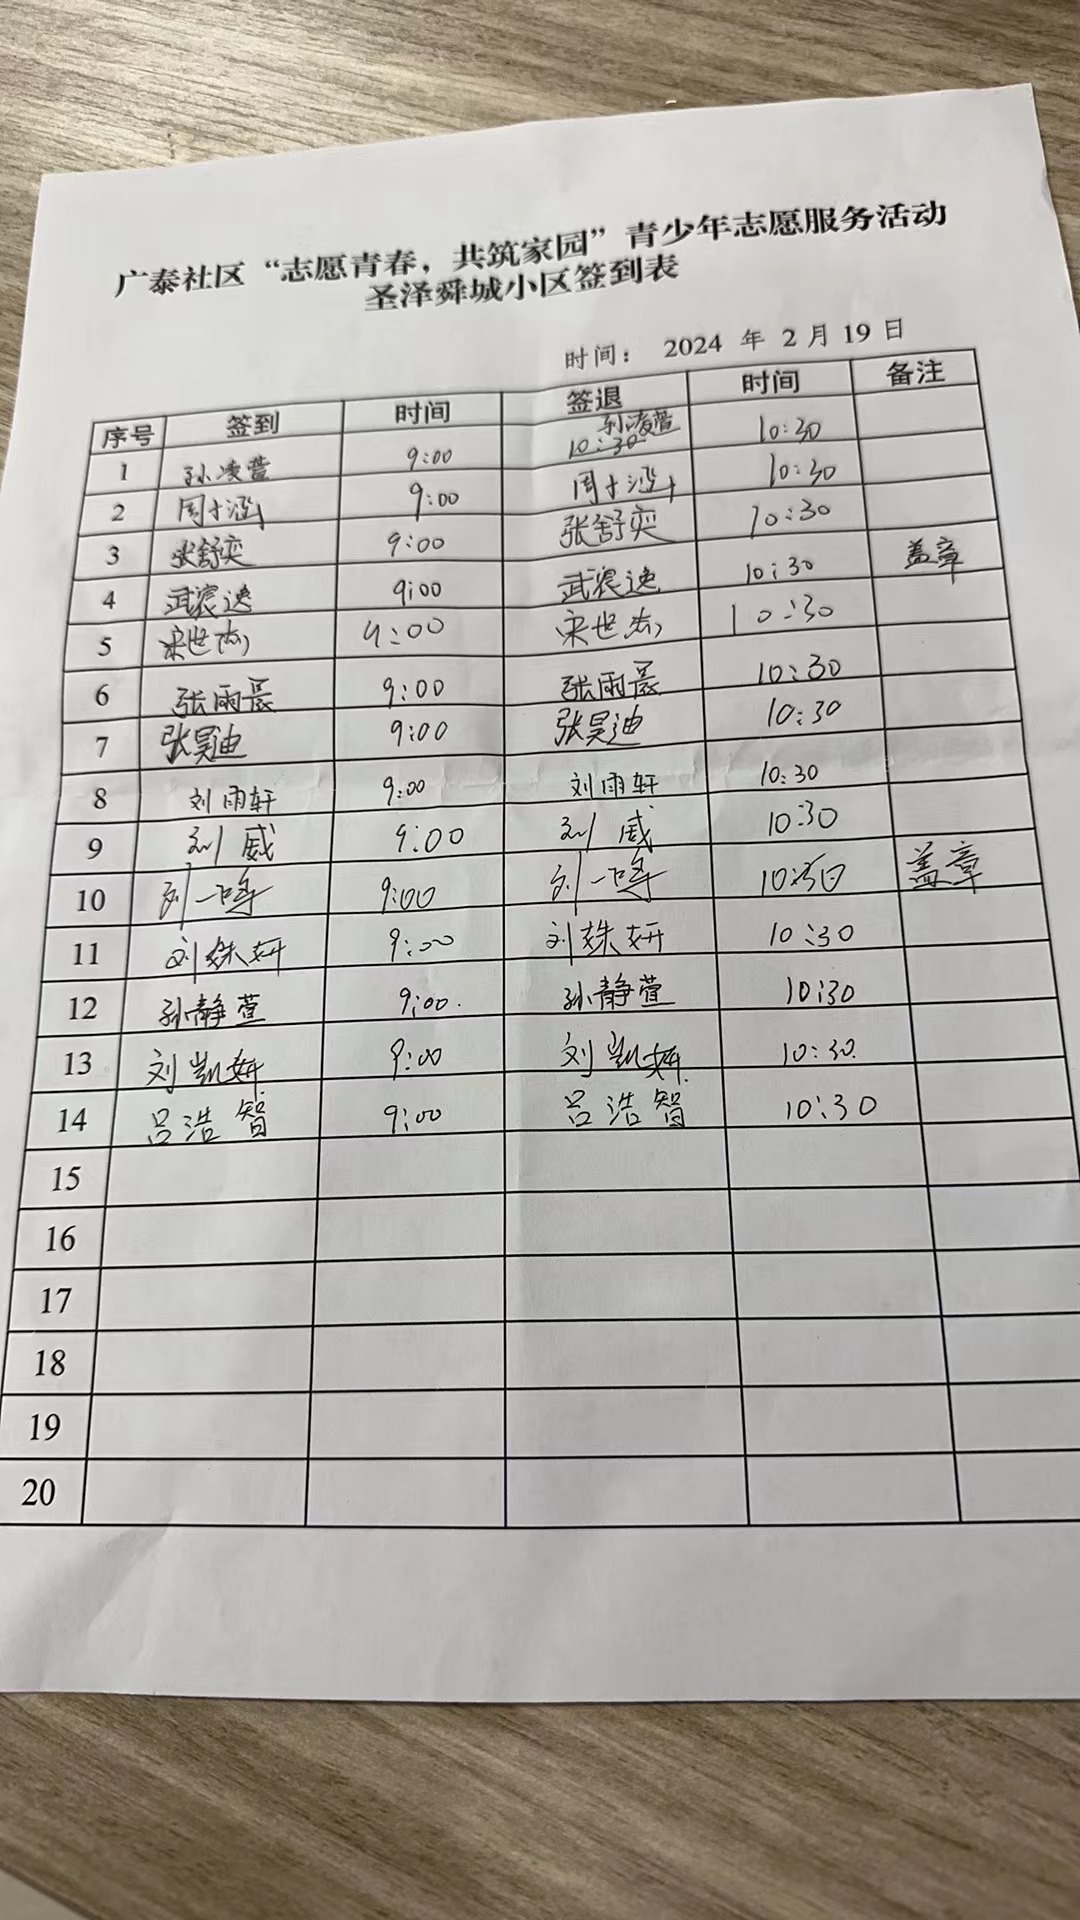 广泰社区“志愿青春，共筑家园”青少年志愿服务活动
圣泽舜城小区签到表
时间： 2024 年 2 月 19 日
序号 签到 时间 签退 时间 备注
1 孙凌萱 9:00 10:30 孙凌萱 10:30
2 周士涵 9:00 周士涵 10:30
3 张舒奕 9:00 张舒奕 10:30
4 武宸逸 9:00 武宸逸 10:30 盖章
5 宋世杰 9:00 宋世杰 10:30
6 张雨晨 9:00 张雨晨 10:30
7 张昊迪 9:00 张昊迪 10:30
8 刘雨轩 9:00 刘雨轩 10:30
9 刘威 9:00 刘威 10:30
10 刘一 9:00 刘一 10:30 盖章
11 刘姝妍 9:00 刘姝妍 10:30
12 孙静萱 9:00. 孙静萱 10:30
13 刘凯妍 9:00 刘凯妍 10:30
14 吕浩智 9:00 吕浩智 10:30
15
16
17
18
19
20